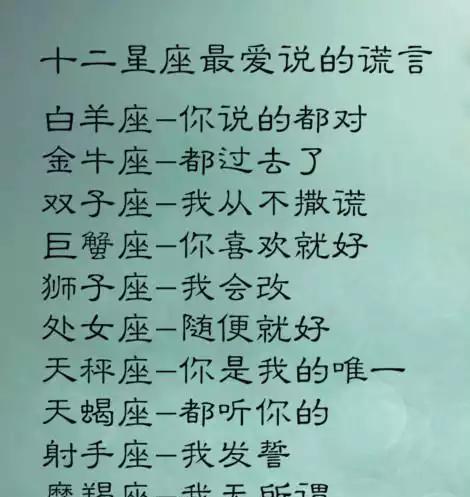 十二星座最爱说的谎言
白羊座-你说的都对
金牛座-都过去了
双子座-我从不撒谎
巨蟹座-你喜欢就好
狮子座-我会改
处女座-随便就好
天秤座-你是我的唯一
天蝎座-都听你的
射手座-我发誓
摩羯座-我无所谓